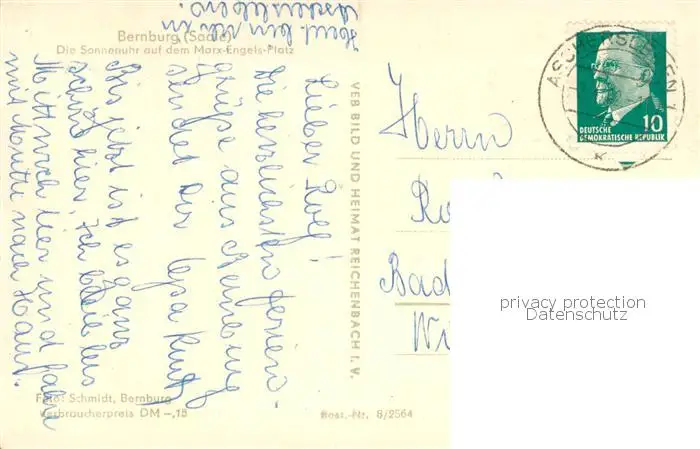 Bernburg (Saale)
Die Sonnenuhr auf dem Marx-Engels-Platz
Heut bin ich in
Aschersleben.
Lieber Rolf!
Die herzlichsten Ferien-
grüße aus Bernburg
sendet Dir Opa Kurt
Bis jetzt ist es ganz
schön hier. Ich bleibe bis
Mittwoch hier und fahre
mit Mutti nach Hause.
Foto: Schmidt, Bernburg
Verbraucherpreis DM -,15
VEB BILD UND HEIMAT REICHENBACH I. V.
Best.-Nr. 8/2564
ASCHERSLEBEN 1
DEUTSCHE
DEMOKRATISCHE REPUBLIK
10
Herrn
Ro
Bad
Wi
privacy protection
Datenschutz